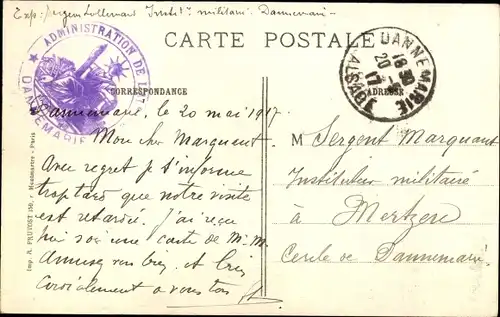 Exp: Sergent Lallemand Instit. militaire Dannemarie
ADMINISTRATION DE
DANNEMARIE
CARTE POSTALE
CORRESPONDANCE
ADRESSE
DANNEMARIE
18 30
20 - 5
17
ALSACE
Dannemarie, le 20 mai 1917
Mon cher Marquant
Avec regret je t'informe
trop tard que notre visite
est retardée. J'ai reçu
une carte de M. M.
Amusez vous bien et
Cordialement à vous tous
M Sergent Marquant
Instituteur militaire
à Mertzen
Cercle de Dannemarie
Imp. A. PRUVOST 159, r. Montmartre - Paris